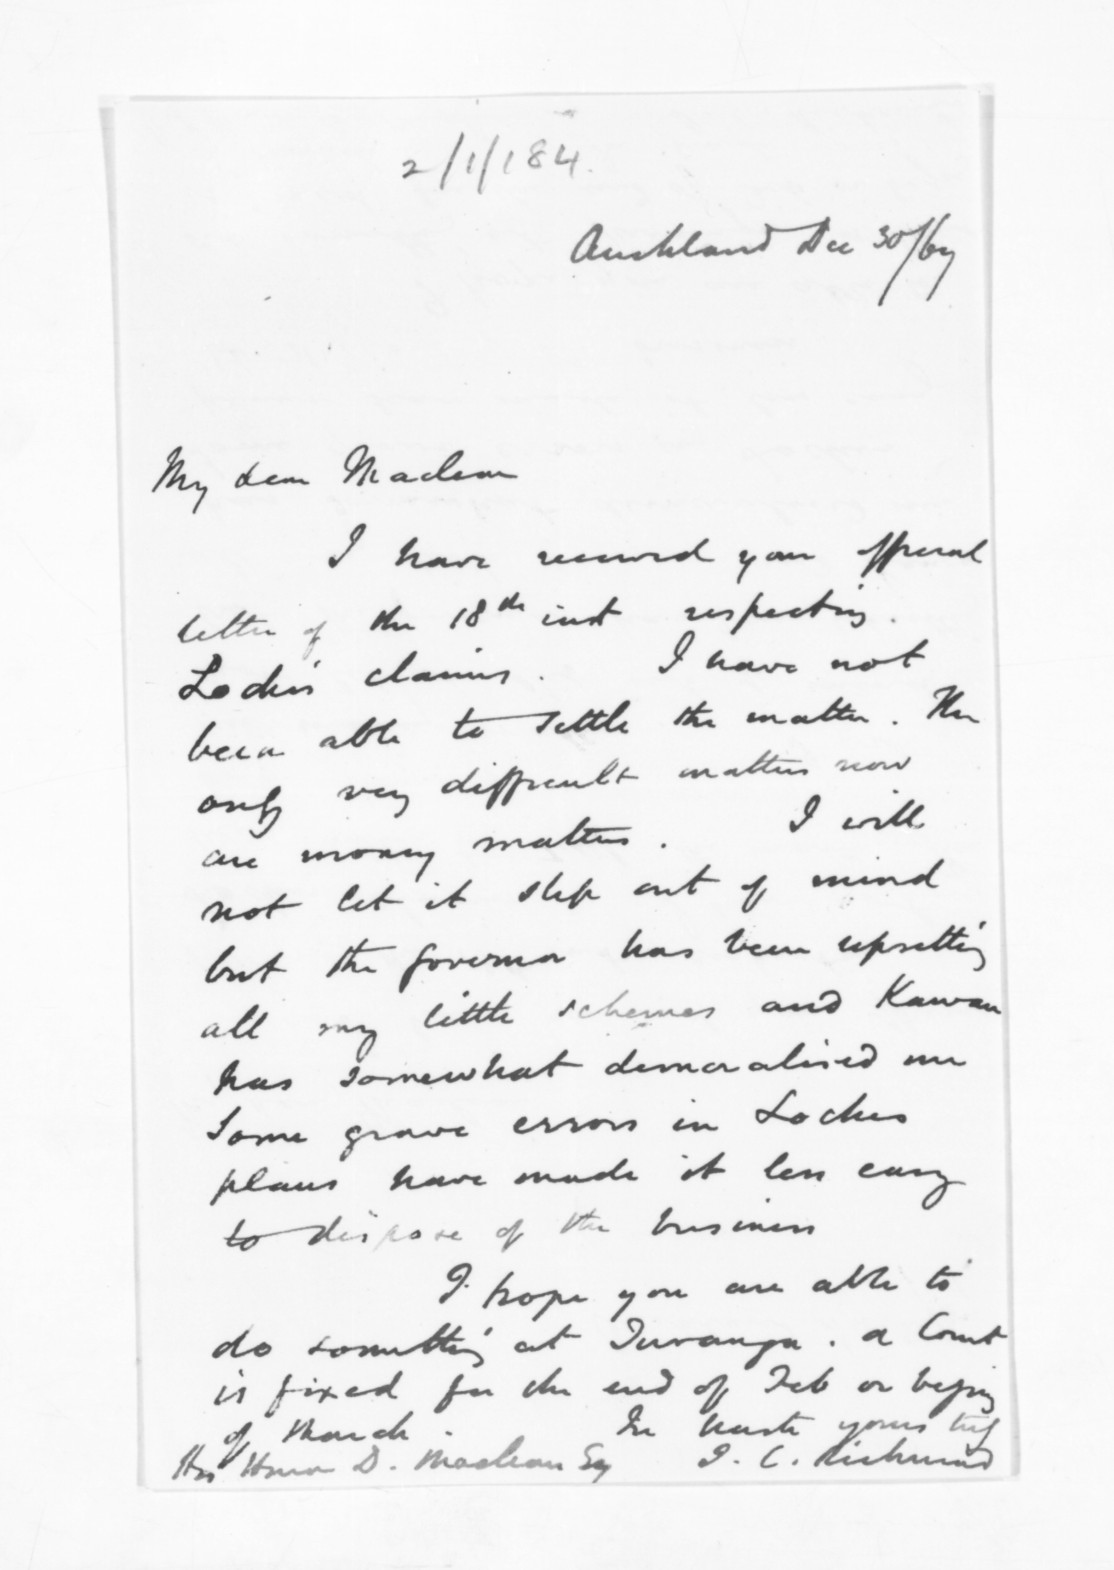 2/1/184.
Auckland Dec 30/67
My dear Maclean
I have received your official
letter of the 18th inst respecting
Locke's claims. I have not
been able to settle the matter. The
only very difficult matters now
are money matters. I will
not let it slip out of mind
but the Governor has been upsetting
all my little schemes and Kawau
has somewhat demoralised me
Some grave errors in Lockes
plans have made it less easy
to dispose of the business
I hope you are able to
do something at Turanga. a Court
is fixed for the end of Feb or beging
of March. In haste yours truly
His Honor D. Maclean Esq J. C. Richmond